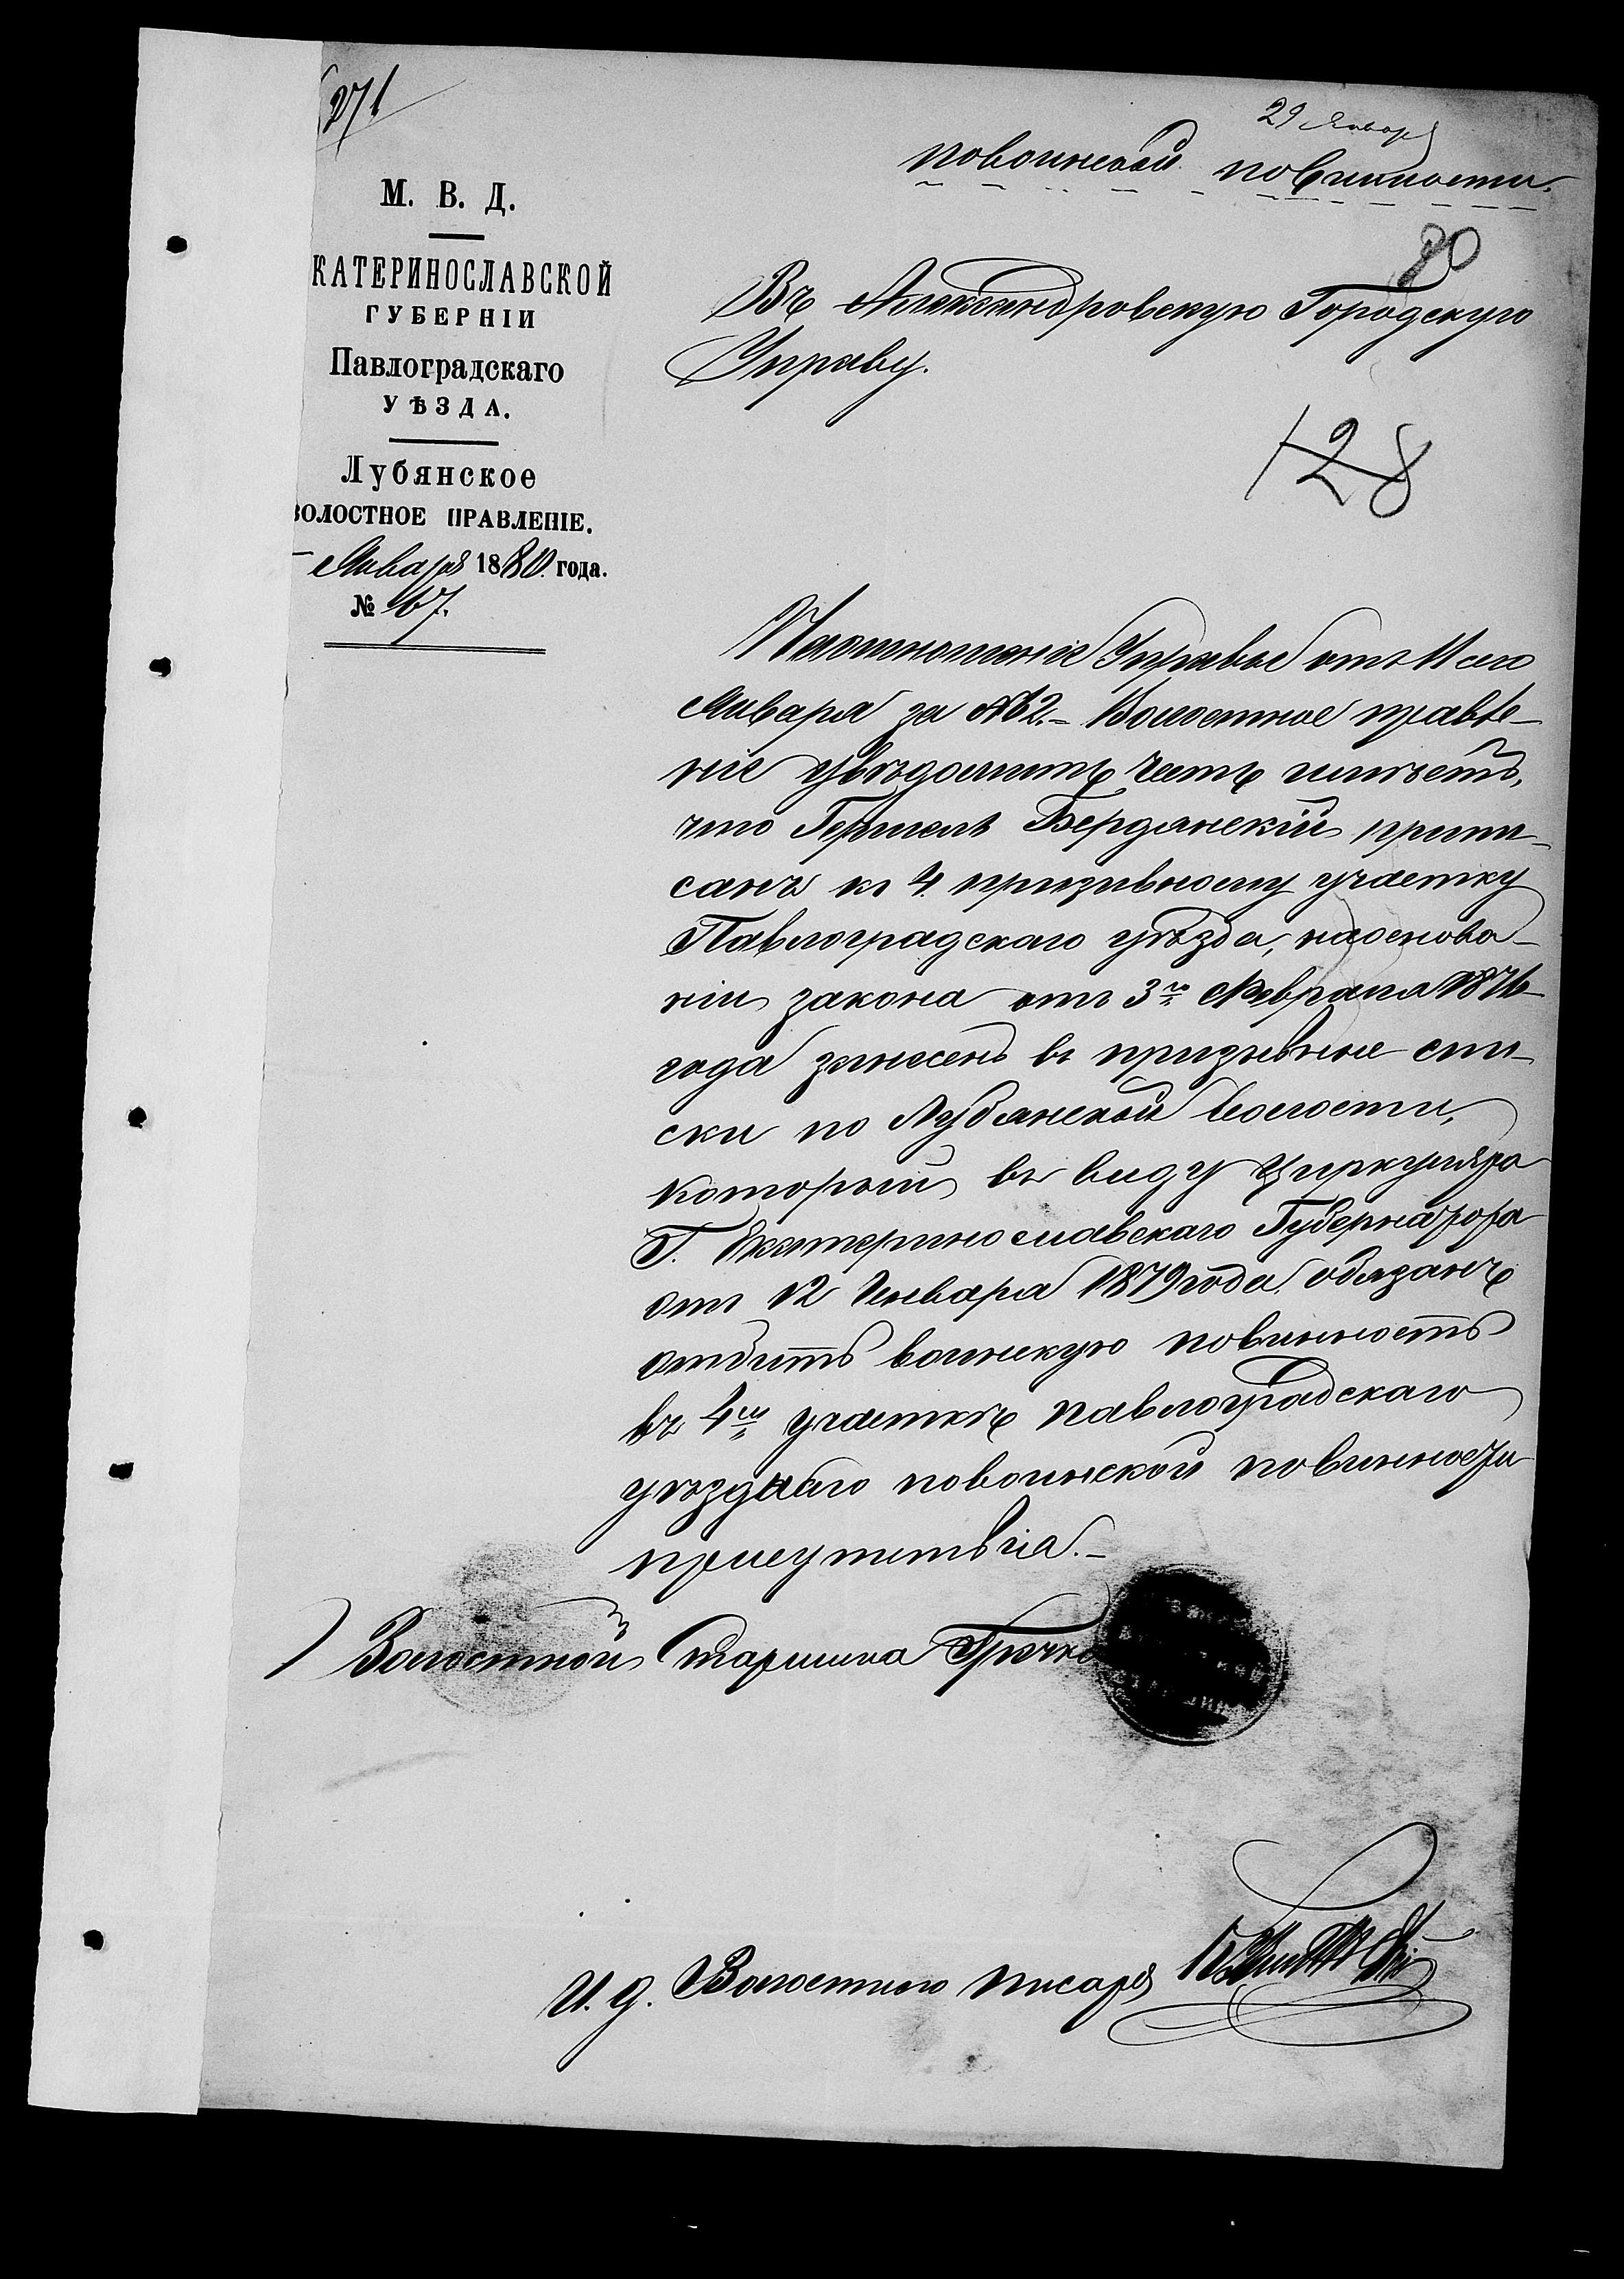 271
29 Января
повоинской повинности.
80
М. В. Д.
КАТЕРИНОСЛАВСКОЙ
ГУБЕРНІИ
Павлоградскаго
УѢЗДА.
Лубянское
ВОЛОСТНОЕ ПРАВЛЕНІЕ.
Января 1880 года.
№ 67.
Въ Александровскую Городскую
Управу.
128
Наотношеніе Управы отъ 11 сего
Января за № 62.- Волостное правле-
ніе увѣдомить честь имѣетъ,
что Гершель Бердянскій припи-
санъ къ 4 призывному участку
Павлоградскаго уѣзда, наоснова-
ніи закона отъ 3го Февраля 1876
года занесенъ въ призывные спи-
ски по Лубянской волости,
который въ виду Циркуляра
Г. Екатеринославскаго Губернатора
отъ 12 Января 1879 года, обязанъ
отбыть воинскую повинность
въ 4мъ участкѣ Павлоградскаго
уѣзднаго повоинской повинности
присутствія.-
Волостной Старшина Гречко
И. д. Волостного писаря